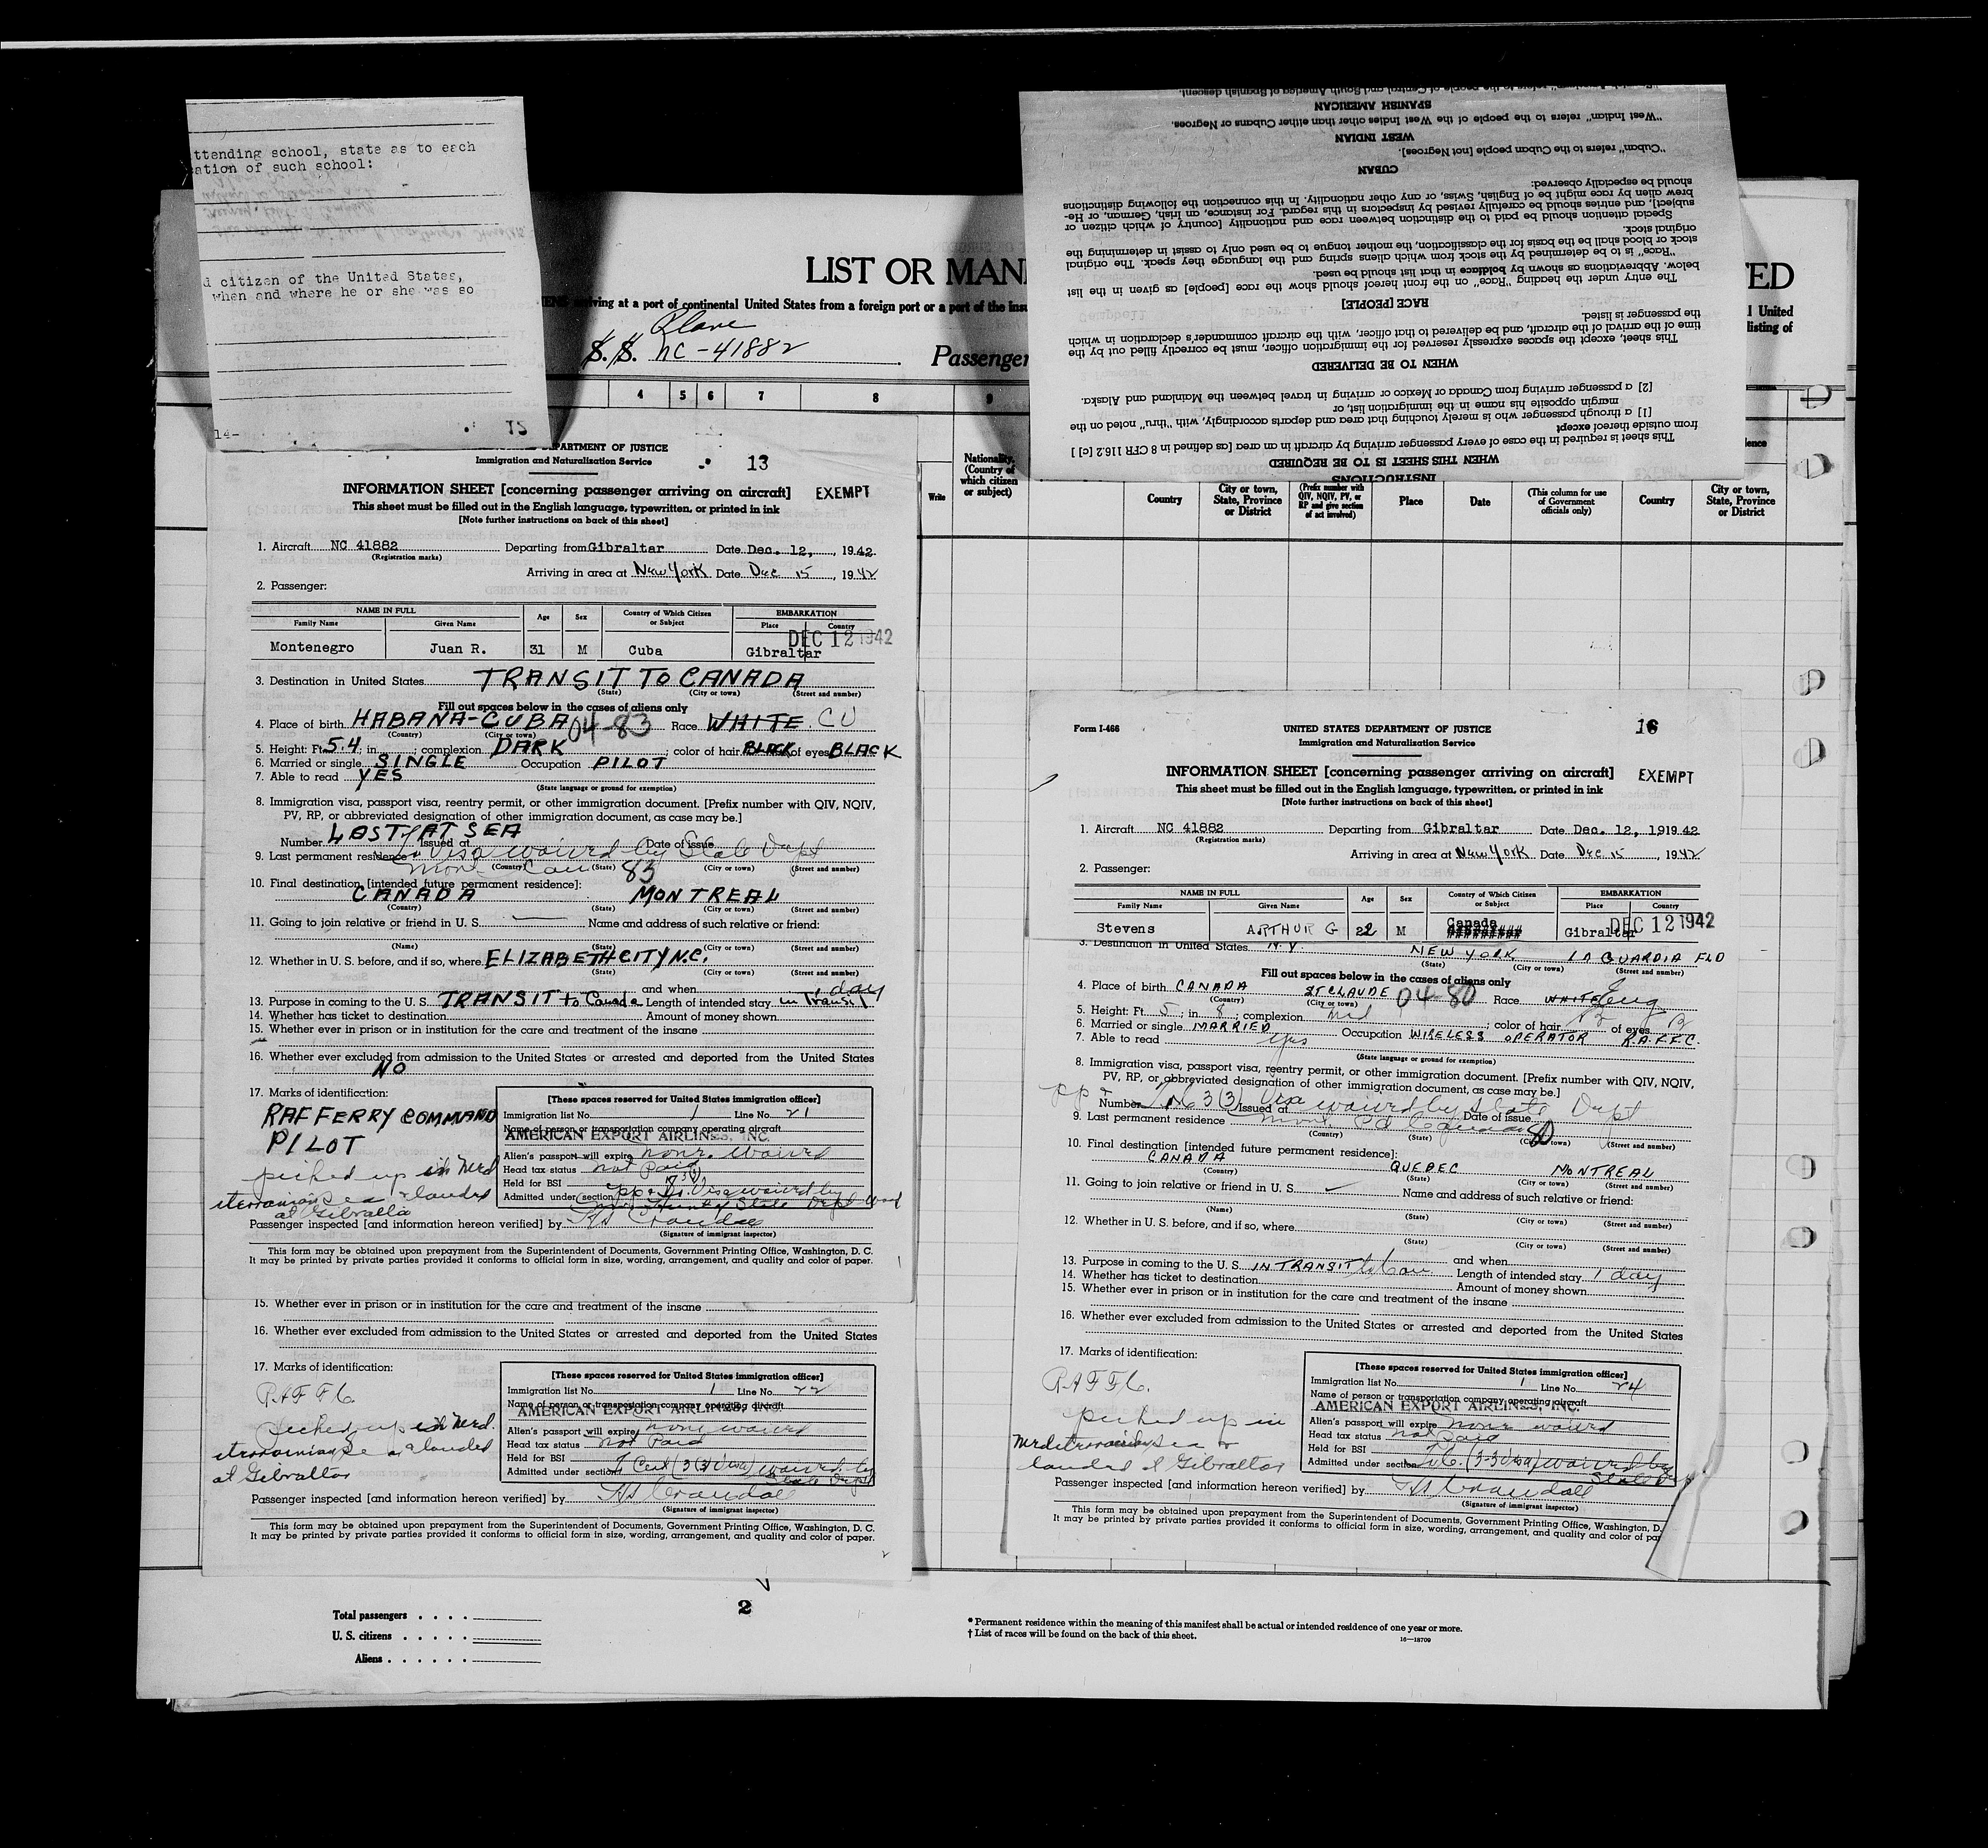 ttending school, state as to each
ation of such school:
d citizen of the United States,
when and where he or she was so
14-
12
LIST OR MAN
ED
iving at a port of continental United States from a foreign port or a part of the insu
l United
listing of
Plane
S. S. NC-41882
Passenger
4 5 6 7 8 9
Nationality.
(Country of
which citizen
or subject)
Write
Country
City or town,
State, Province
or District
(Prefix number with
QIV, NQIV, PV, or
RP and give section
of act involved)
Place
Date
(This column for use
of Government
officials only)
Country
City or town,
State, Province
or District
INSTRUCTIONS
WHEN THIS SHEET IS TO BE REQUIRED
This sheet is required in the case of every passenger arriving by aircraft in an area [as defined in 8 CFR 116.2 [c] ]
from outside thereof except
[1] a through passenger who is merely touching that area and departs accordingly, with "thru" noted on the
margin opposite his name in the immigration list, or
[2] a passenger arriving from Canada or Mexico or arriving in travel between the Mainland and Alaska.
WHEN TO BE DELIVERED
This sheet, except the spaces expressly reserved for the immigration officer, must be correctly filled out by the
time of the arrival of the aircraft, and be delivered to that officer, with the aircraft commander's declaration in which
the passenger is listed.
RACE [PEOPLE]
The entry under the heading "Race" on the front hereof should show the race [people] as given in the list
below. Abbreviations as shown by boldface in that list should be used.
"Race" is to be determined by the stock from which aliens spring and the language they speak. The original
stock or blood shall be the basis for the classification, the mother tongue to be used only to assist in determining the
original stock.
Special attention should be paid to the distinction between race and nationality [country of which citizen or
subject], and entries should be carefully revised by inspectors in this regard. For instance, an Irish, German, or He-
brew alien by race might be of English, Swiss, or any other nationality. In this connection the following distinctions
should be especially observed:
CUBAN
"Cuban" refers to the Cuban people [not Negroes].
WEST INDIAN
"West Indian" refers to the people of the West Indies other than either Cubans or Negroes.
SPANISH AMERICAN
refers to the people of Central and South America of Spanish descent.
PARTMENT OF JUSTICE
Immigration and Naturalization Service
13
INFORMATION SHEET [concerning passenger arriving on aircraft] EXEMPT
This sheet must be filled out in the English language, typewritten, or printed in ink
[Note further instructions on back of this sheet]
1. Aircraft NC 41882 Departing from Gibraltar Date Dec. 12, 1942
(Registration marks)
Arriving in area at New York Date Dec 15, 1942
2. Passenger:
NAME IN FULL Age Sex Country of Which Citizen or Subject EMBARKATION
Family Name Given Name Place Country
DEC 12 1942
Montenegro Juan R. 31 M Cuba Gibraltar
3. Destination in United States TRANSIT TO CANADA
(State) (City or town) (Street and number)
Fill out spaces below in the cases of aliens only
4. Place of birth HABANA-CUBA 04-83 Race WHITE CU
(Country) (City or town)
5. Height: Ft. 5.4; in ; complexion DARK ; color of hair BLACK of eyes BLACK
6. Married or single SINGLE Occupation PILOT
7. Able to read YES
(State language or ground for exemption)
8. Immigration visa, passport visa, reentry permit, or other immigration document. [Prefix number with QIV, NQIV,
PV, RP, or abbreviated designation of other immigration document, as case may be.]
Number LAST AT SEA Issued at Date of issue
visa waived by State Dept
9. Last permanent residence Can 83
(Country) (State) (City or town) (Street and number)
10. Final destination [intended future permanent residence]:
CANADA MONTREAL
(Country) (State) (City or town) (Street and number)
11. Going to join relative or friend in U. S. Name and address of such relative or friend:
(Name) (State) (City or town) (Street and number)
12. Whether in U. S. before, and if so, where ELIZABETH CITY N.C.
(State) (City or town) (Street and number)
and when
1 day
13. Purpose in coming to the U. S. TRANSIT to Canada Length of intended stay in Transit
14. Whether has ticket to destination Amount of money shown
15. Whether ever in prison or in institution for the care and treatment of the insane
16. Whether ever excluded from admission to the United States or arrested and deported from the United States
NO
17. Marks of identification:
RAF FERRY COMMAND
PILOT
picked up in Med
iterranian Sea & landed
at Gibralta
[These spaces reserved for United States immigration officer]
Immigration list No. 1 Line No. 21
Name of person or transportation company operating aircraft
AMERICAN EXPORT AIRLINES, INC.
Alien's passport will expire none waived
Head tax status not Paid
Held for BSI
Admitted under section
Passenger inspected [and information hereon verified] by HS Crandall
(Signature of immigrant inspector)
This form may be obtained upon prepayment from the Superintendent of Documents, Government Printing Office, Washington, D. C.
It may be printed by private parties provided it conforms to official form in size, wording, arrangement, and quality and color of paper.
15. Whether ever in prison or in institution for the care and treatment of the insane
16. Whether ever excluded from admission to the United States or arrested and deported from the United States
17. Marks of identification:
RAFFC.
Picked up in Med.
iterranian Sea & landed
at Gibraltar
[These spaces reserved for United States immigration officer]
Immigration list No. 1 Line No. 22
Name of person or transportation company operating aircraft
AMERICAN EXPORT AIRLINES, INC.
Alien's passport will expire none waived
Head tax status not Paid
Held for BSI
Admitted under section waived by
State Dept
Passenger inspected [and information hereon verified] by HS Crandall
(Signature of immigrant inspector)
This form may be obtained upon prepayment from the Superintendent of Documents, Government Printing Office, Washington, D. C.
It may be printed by private parties provided it conforms to official form in size, wording, arrangement, and quality and color of paper.
Form I-466
UNITED STATES DEPARTMENT OF JUSTICE
Immigration and Naturalization Service
16
INFORMATION SHEET [concerning passenger arriving on aircraft] EXEMPT
This sheet must be filled out in the English language, typewritten, or printed in ink
[Note further instructions on back of this sheet]
1. Aircraft NC 41882 Departing from Gibraltar Date Dec. 12, 1919.42
(Registration marks)
Arriving in area at New York Date Dec 15, 1942
2. Passenger:
NAME IN FULL Age Sex Country of Which Citizen or Subject EMBARKATION
Family Name Given Name Place Country
Stevens ARTHUR G 22 M Canada Gibraltar DEC 12 1942
3. Destination in United States N.Y. NEW YORK LA GUARDIA FLD
(State) (City or town) (Street and number)
Fill out spaces below in the cases of aliens only
4. Place of birth CANADA ST CLAUDE 04-80 Race WHITE Eng
(Country) (City or town)
5. Height: Ft. 5; in 8; complexion Med ; color of hair Br of eyes B
6. Married or single MARRIED Occupation WIRELESS OPERATOR R.A.F.F.C.
7. Able to read yes
(State language or ground for exemption)
8. Immigration visa, passport visa, reentry permit, or other immigration document. [Prefix number with QIV, NQIV,
PV, RP, or abbreviated designation of other immigration document, as case may be.]
Number 3(3) Visa waived by State Dept
Issued at Date of issue
9. Last permanent residence 80
(Country) (State) (City or town) (Street and number)
10. Final destination [intended future permanent residence]:
CANADA QUEBEC MONTREAL
(Country) (State) (City or town) (Street and number)
11. Going to join relative or friend in U. S. Name and address of such relative or friend:
(Name) (State) (City or town) (Street and number)
12. Whether in U. S. before, and if so, where
(State) (City or town) (Street and number)
and when
13. Purpose in coming to the U. S. IN TRANSIT to Can Length of intended stay 1 day
14. Whether has ticket to destination Amount of money shown
15. Whether ever in prison or in institution for the care and treatment of the insane
16. Whether ever excluded from admission to the United States or arrested and deported from the United States
17. Marks of identification:
RAFFC.
picked up in
Mediterranian Sea &
landed at Gibraltar
[These spaces reserved for United States immigration officer]
Immigration list No. 1 Line No. 24
Name of person or transportation company operating aircraft
AMERICAN EXPORT AIRLINES, INC.
Alien's passport will expire none waived
Head tax status not Paid
Held for BSI
Admitted under section waived by
State Dept
Passenger inspected [and information hereon verified] by HS Crandall
(Signature of immigrant inspector)
This form may be obtained upon prepayment from the Superintendent of Documents, Government Printing Office, Washington, D.
It may be printed by private parties provided it conforms to official form in size, wording, arrangement, and quality and color of pap
Total passengers
U. S. citizens
Aliens
2
* Permanent residence within the meaning of this manifest shall be actual or intended residence of one year or more.
† List of races will be found on the back of this sheet.
16—18709